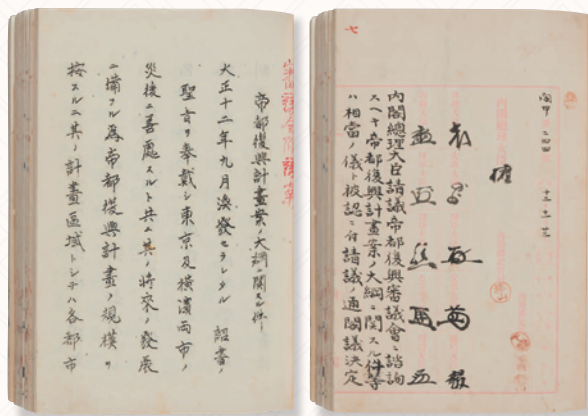 七
内閣總理大臣請議帝都復興審議會ニ諮詢
スヘキ帝都復興計畫案ノ大綱ニ関スル件等
ハ相當ノ儀ト被認ニ付請議ノ通閣議決定
帝都復興計畫案ノ大綱ニ関スル件
大正十二年九月渙發セラレタル 詔書ノ
聖旨ヲ奉戴シ東京及横濱両市ノ
災後ニ善處スルト共ニ其ノ將來ノ發展
ニ備フル為帝都復興計畫ノ規模ヲ
按スルニ其ノ計畫區域トシテハ各都市